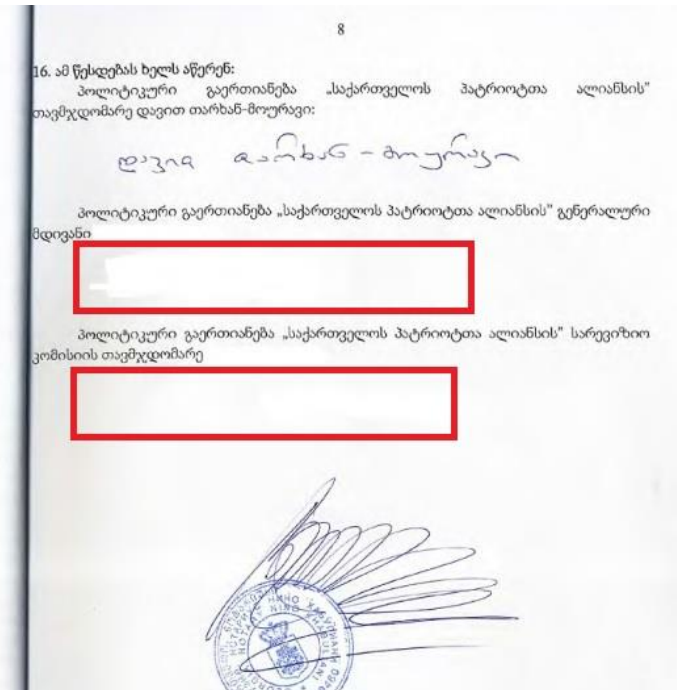 8
16. ამ წესდებას ხელს აწერენ:
პოლიტიკური გაერთიანება „საქართველოს პატრიოტთა ალიანსის"
თავმჯდომარე დავით თარხან-მოურავი:
დავით თარხან-მოურავი
პოლიტიკური გაერთიანება „საქართველოს პატრიოტთა ალიანსის" გენერალური
მდივანი
პოლიტიკური გაერთიანება „საქართველოს პატრიოტთა ალიანსის" სარევიზიო
კომისიის თავმჯდომარე
NOTARY NINO